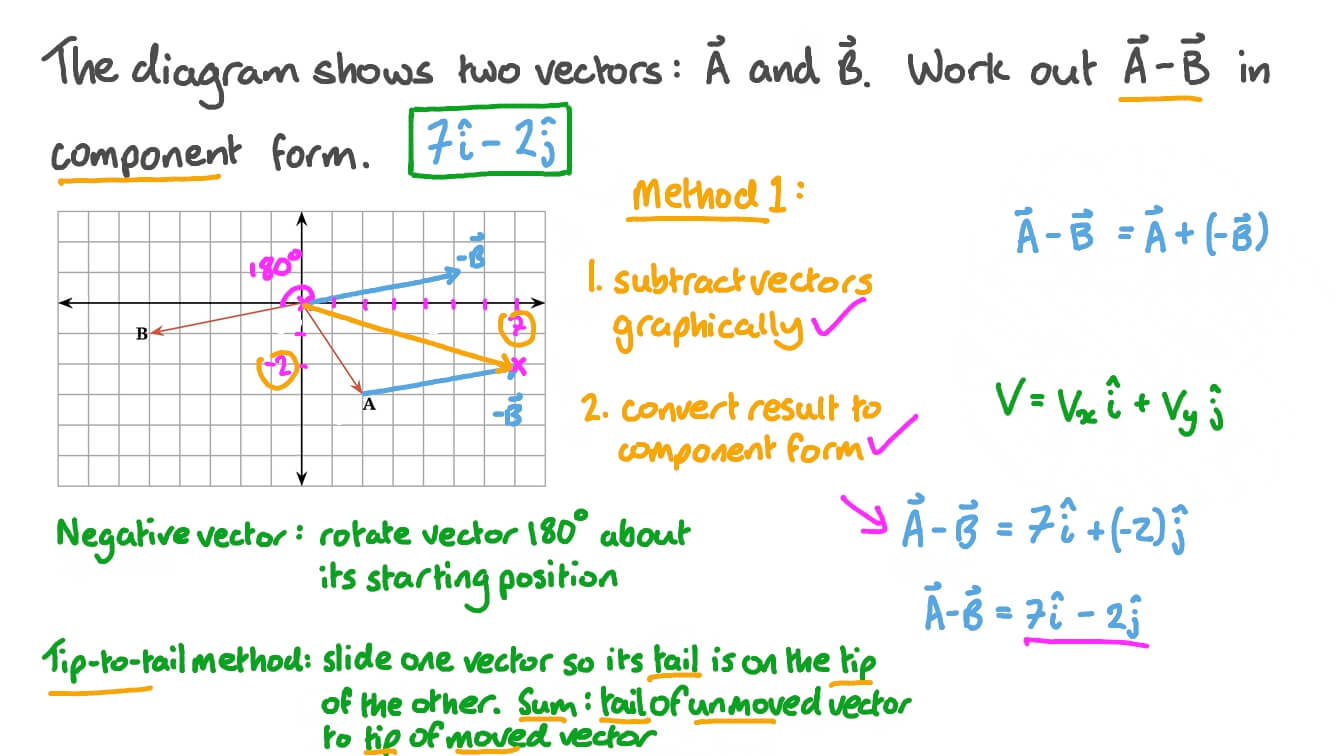 The diagram shows two vectors: A⃗ and B⃗. Work out A⃗-B⃗ in
component form. 7î - 2ĵ
Method 1:
1. subtract vectors
graphically ✓
2. convert result to
component form ✓
A⃗ - B⃗ = A⃗ + (-B⃗)
V = Vₓ î + Vy ĵ
A⃗ - B⃗ = 7î + (-2)ĵ
A⃗-B⃗ = 7î - 2ĵ
180°
-B⃗
B
7
-2
A
-B⃗
Negative vector: rotate vector 180° about
its starting position
Tip-to-tail method: slide one vector so its tail is on the tip
of the other. Sum: tail of unmoved vector
to tip of moved vector